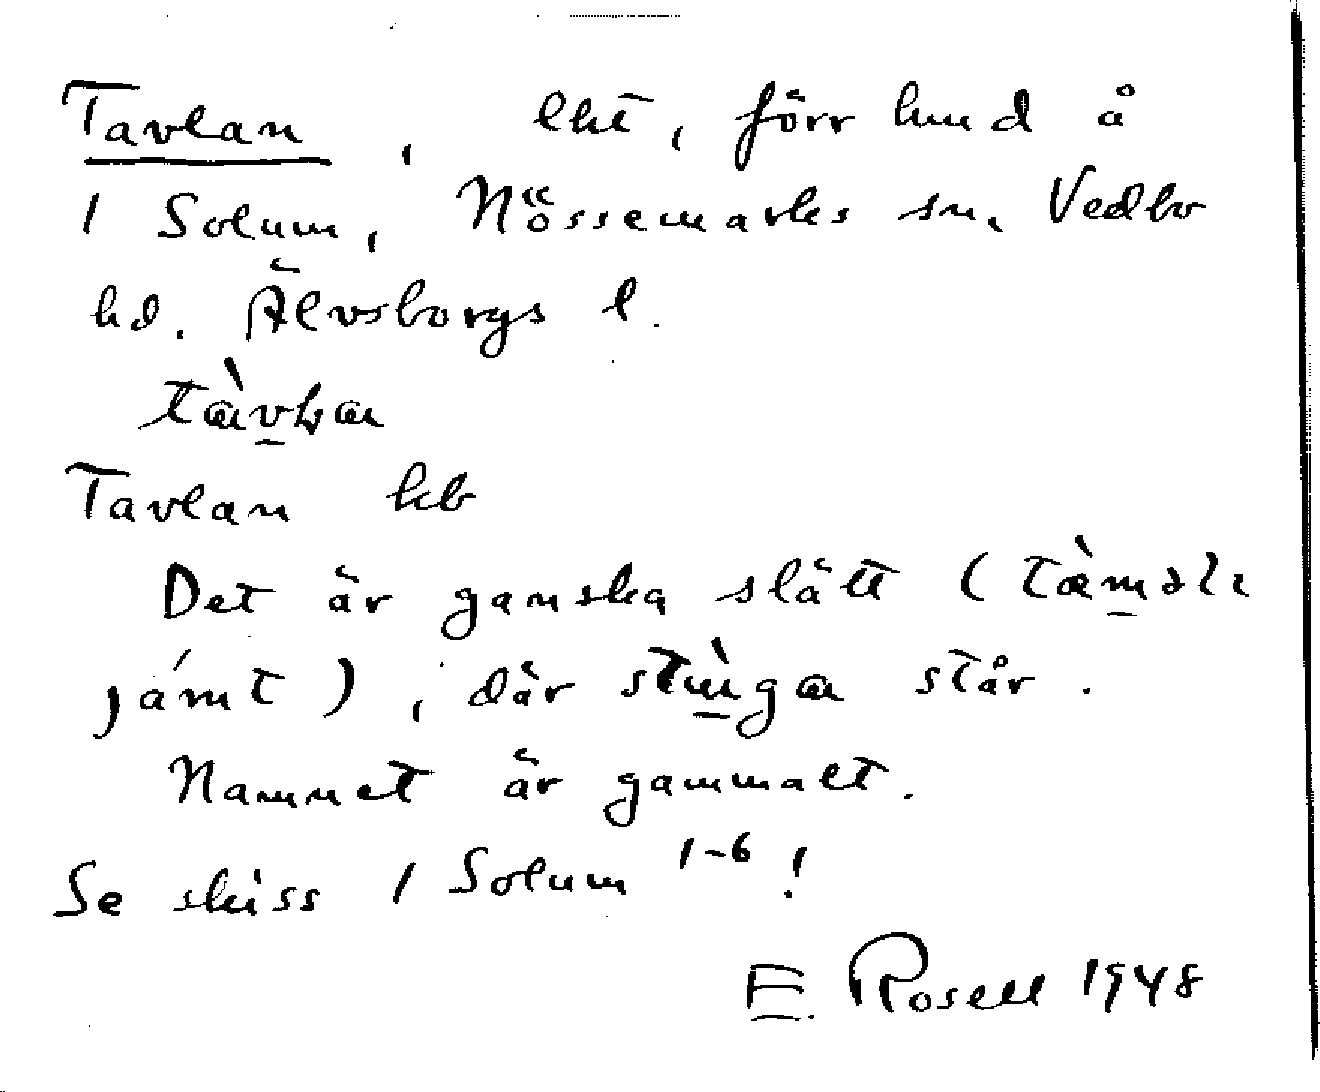 Tavlan, lht, förr lund å
1 Solum, Nössemarks sn, Vedbo
hd. Älvsborgs l.
Tavlan kb
Det är ganska slätt (tæ̀m əli
jámt), där stùga står.
Namnet är gammalt.
Se skiss 1 Solum 1-6!
E. Rosell 1948